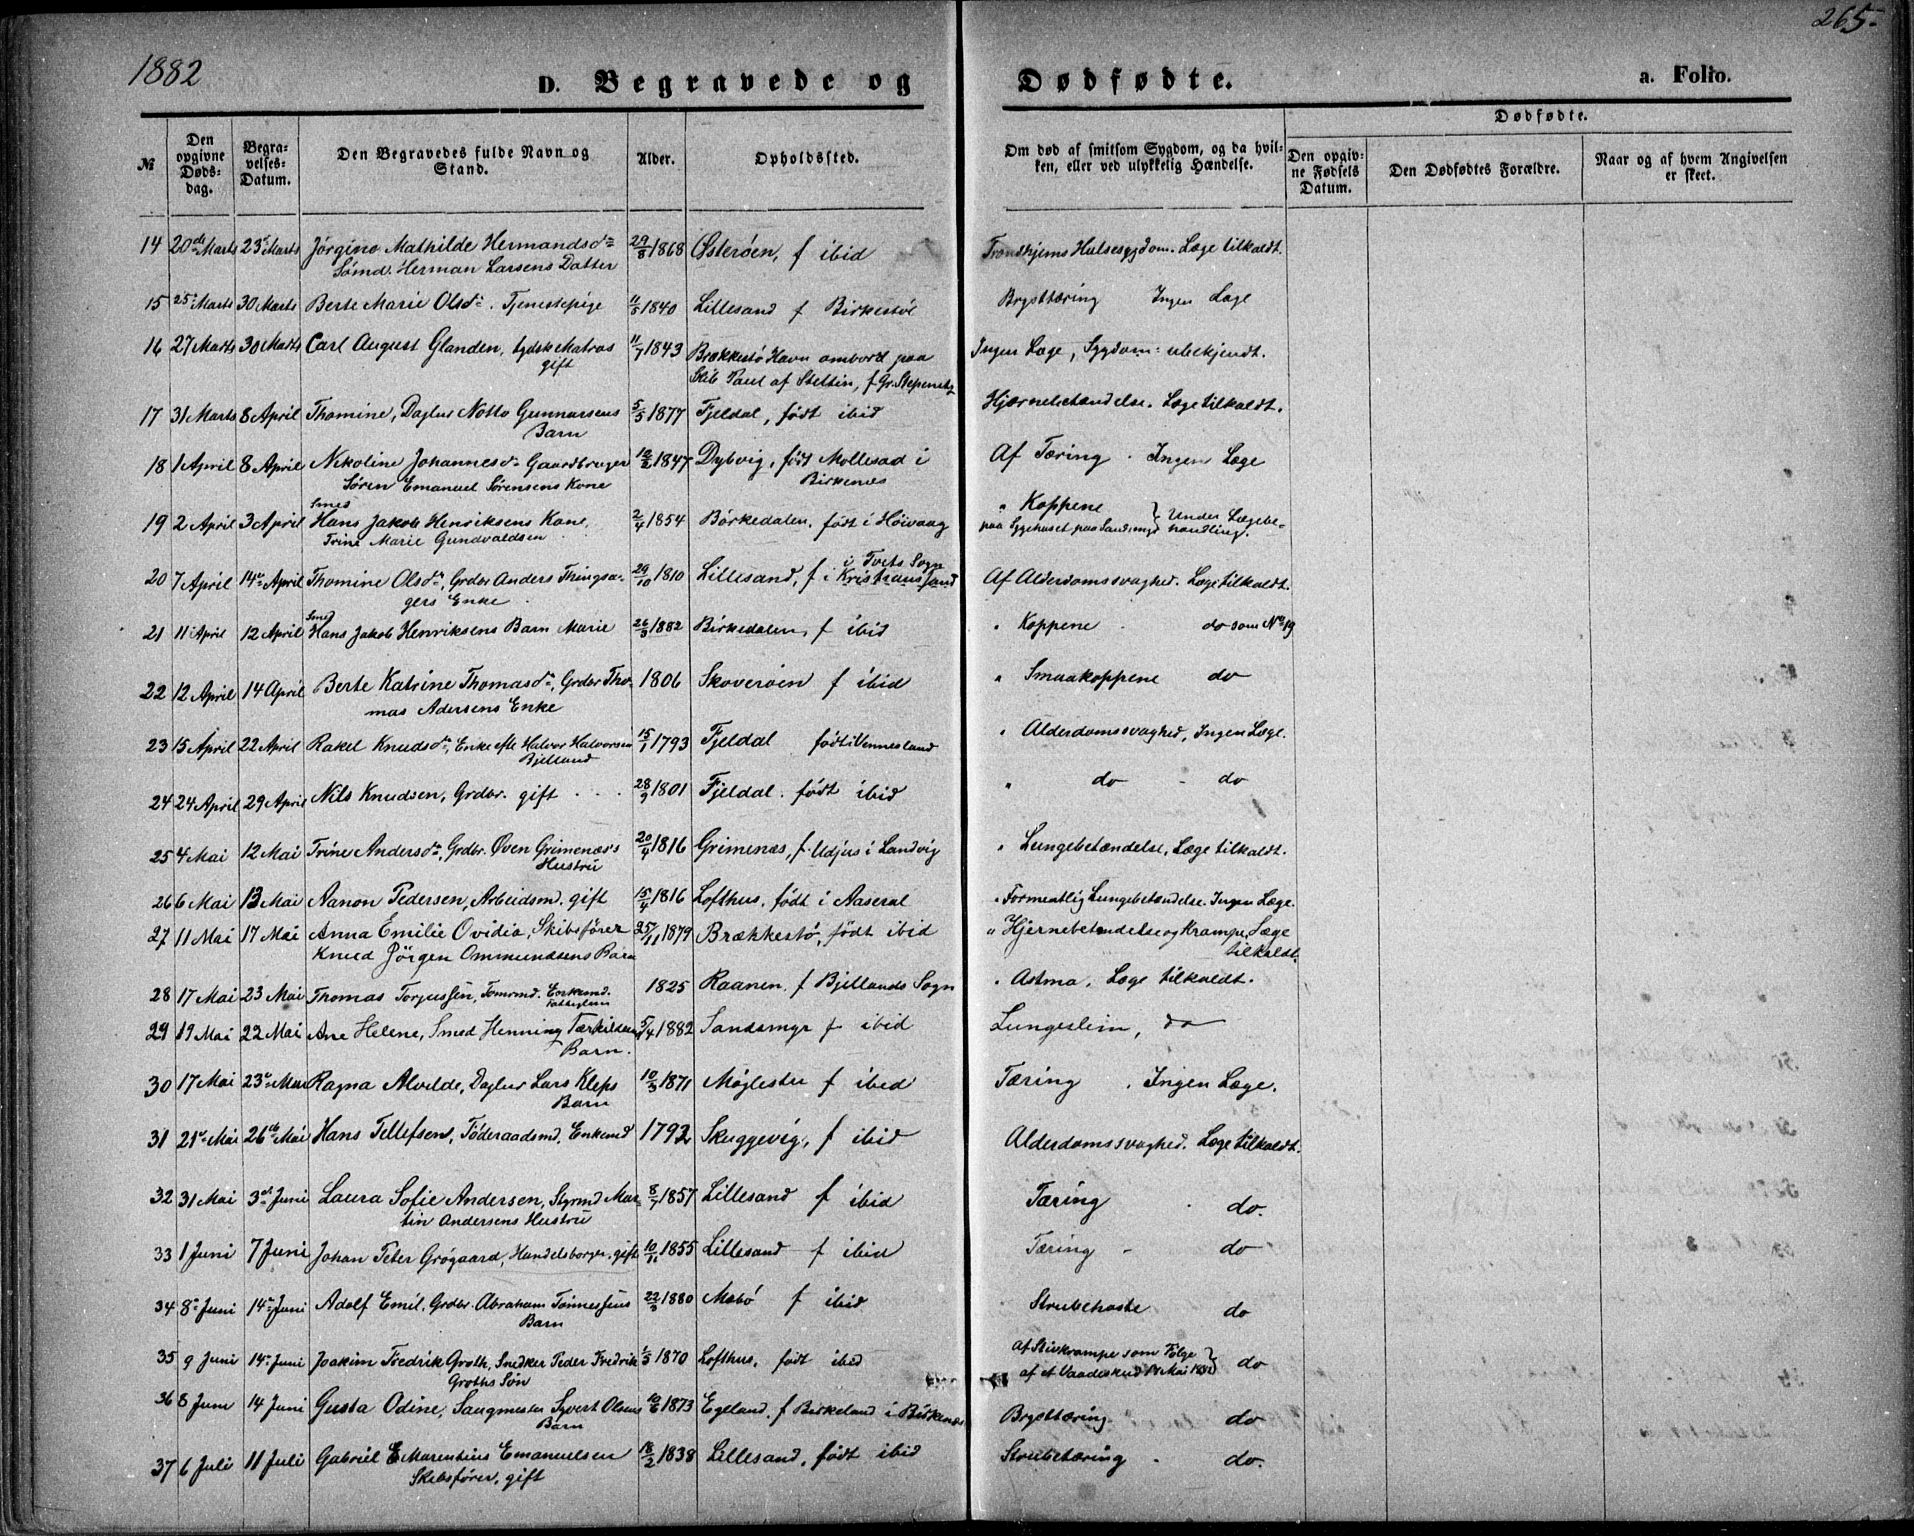 1882
265.
D. Begravede og Dødfødte.
a. Folio.
№
Den opgivne Dødsdag.
Begravelses-Datum.
Den Begravedes fulde Navn og Stand.
Alder.
Opholdssted.
Om død af smitsom Sygdom, og da hvilken, eller ved ulykkelig Hændelse.
Dødfødte.
Den opgivne Fødsels Datum.
Den Dødfødtes Forældre.
Naar og af hvem Angivelsen er skeet.
14 20de Marts 23de Marts Jörgine Mathilde Hermandsdr 29/8 1868 Østeröen, f ibid Halsesygdom. Læge tilkaldt.
Sömd. Herman Larsens Datter
15 25de Marts 30 Marts Berte Marie Olsdr. Tjenestepige 11/5 1840 Lillesand f Birkestöl Brysttæring Ingen Læge
16 27 Marts 30 Marts Carl August Glanden, tydsk Matros 11/7 1843 Brækkestö Havn ombord paa Ingen Læge, Sygdom: ubekjendt.
gift Skib Paul af Stettin, f Gr. Stepenitz
17 31 Marts 8 April Thomine, Daglnr Notto Gunnarsens 5/5 1877 Fjeldal, födt ibid Hjærnebetændelse. Læge tilkaldt.
Barn
18 1 April 8 April Nikoline Johannesdr Gaardbruger 10/2 1847 Dybvig, födt Mollesad i Af Tæring. Ingen Læge
Sören Emanuel Sörensens Kone Birkenes
19 2 April 3 April Smed Hans Jakob Henriksens Kone, 2/4 1854 Börkedalen, födt i Höivaag " Koppene
Trine Marie Gundvaldsen paa Sygehuset paa Sandsmyr } Under Lægebehandling.
20 7 April 14de April Thomine Olsdr, Grdbr Anders Thingsa- 29/10 1810 Lillesand, f i Tveits Sogn i Kristianssand Af Alderdomssvaghed. Læge tilkaldt.
gers Enke
21 11 April 12 April Smed Hans Jakob Henriksens Barn Marie 26/3 1882 Birkedalen, f ibid " Koppene do som No 19
22 12 April 14 April Berte Katrine Thomasdr, Grdbr Tho- 1806 Skoveröen f ibid " Smaakoppene do
mas Adersens Enke
23 15 April 22 April Rakel Knudsdr, Enke efte Halvor Halvorsen 15/1 1793 Fjeldal födt i Vennesland " Alderdomssvaghed, Ingen Læge.
Bjelland
24 24 April 29 April Nils Knudsen, Grdbr. gift 28/9 1801 Fjeldal. födt ibid " do - do
25 4 Mai 12 Mai Trine Andersdr, Grdbr. Öven Grimenæs's 20/4 1816 Grimenæs, f. Udjus i Landvig " Lungebetændelse, Læge tilkaldt.
Hustru
26 6 Mai 13 Mai Aanon Pedersen, Arbeidsmd. gift 15/4 1816 Lofthus, födt i Aaseral " Formentlig Lungebetændelse. Ingen Læge.
27 11 Mai 17 Mai Anna Emilie Ovidia, Skibsförer 25/11 1879 Brækkestö, födt ibid " Hjernebetændelse og Krampe, Læge
Knud Jörgen Ommundsens Barn tilkaldt.
28 17 Mai 23 Mai Thomas Torjussen, Tömrmd. Enkemd. 1825 Raanen, f Bjellands Sogn " Astma, Læge tilkaldt.
29 19 Mai 22 Mai Ane Helene, Smed Henning Tærkildsens 5/4 1882 Sandsmyr f ibid Lungeslim, do
Barn.
30 17 Mai 23de Mai Ragna Alvilde, Daglnr Lars Kleps 10/3 1871 Möglestu f ibid Tæring. Ingen Læge.
Barn
31 21de Mai 26de Mai Hans Tellefsen, Föderaadsmd, Enkemd 1792 Skuggevig, f ibid Alderdomssvaghed. Læge tilkaldt.
32 31 Mai 3de Juni Laura Sofie Andersen, Styrmd Mar- 8/7 1857 Lillesand f ibid Tæring do.
tin Andersens Hustru
33 1 Juni 7 Juni Johan Peter Grögaard, Handelsborger, gift 10/11 1855 Lillesand f ibid Tæring - do
34 8de Juni 14de Juni Adolf Emil, Grdbr. Abraham Tönnessens 22/3 1880 Mæbö f ibid Strubehoste do
Barn
35 9 Juni 14de Juni Joakim Fredrik Groth, Snedker Peder Fredrik 1/5 1870 Lofthus, födt ibid Af Stivkrampe som Fölge
Groths Sön af et Vaadeskud 17 Mai 1882 } do
36 8 Juni 14 Juni Gusta Odine, Saugmester Syvert Olsens 10/6 1873 Egeland, f Birkeland i Birkenæs Brysttæring. do
Barn
37 6 Juli 11 Juli Gabriel E Marentius Emanuelsen 18/2 1838 Lillesand, födt ibid Strubetæring - do.
Skibsförer, gift